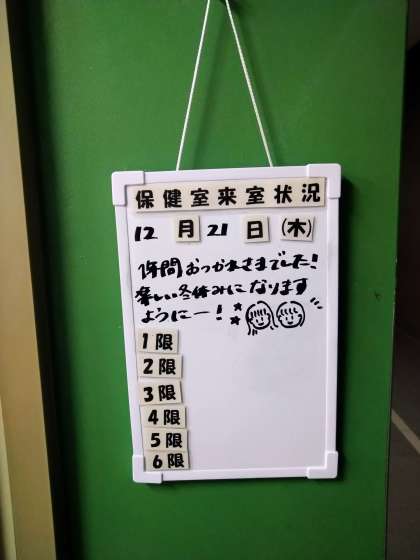 保健室来室状況
12月21日(木)
1年間おつかれさまでした!
楽しい冬休みになります
ようにー!
1限
2限
3限
4限
5限
6限